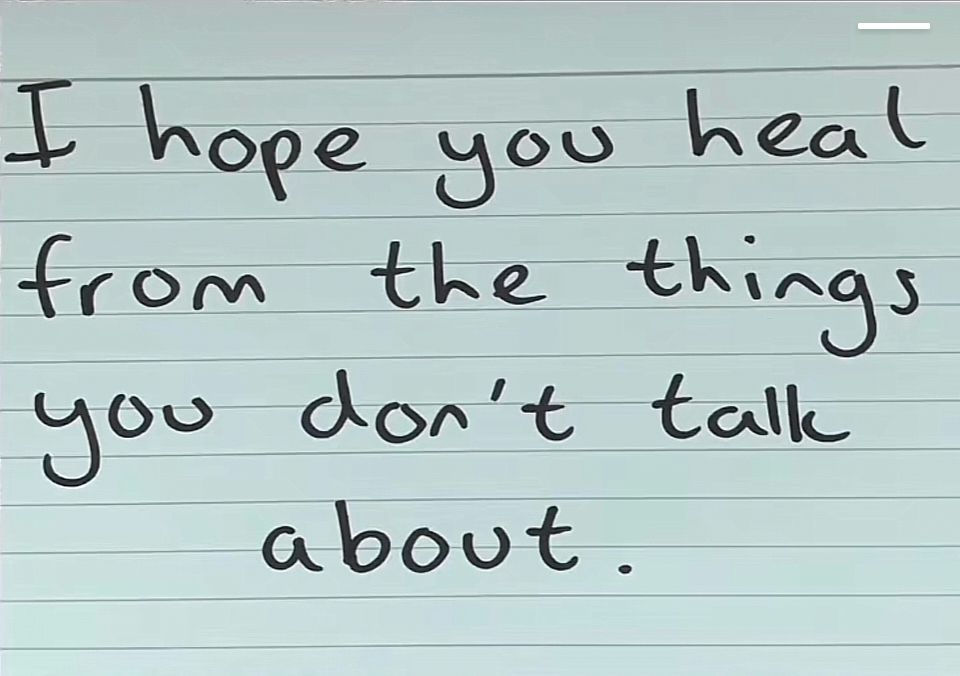 I hope you heal
from the things
you don't talk
about.